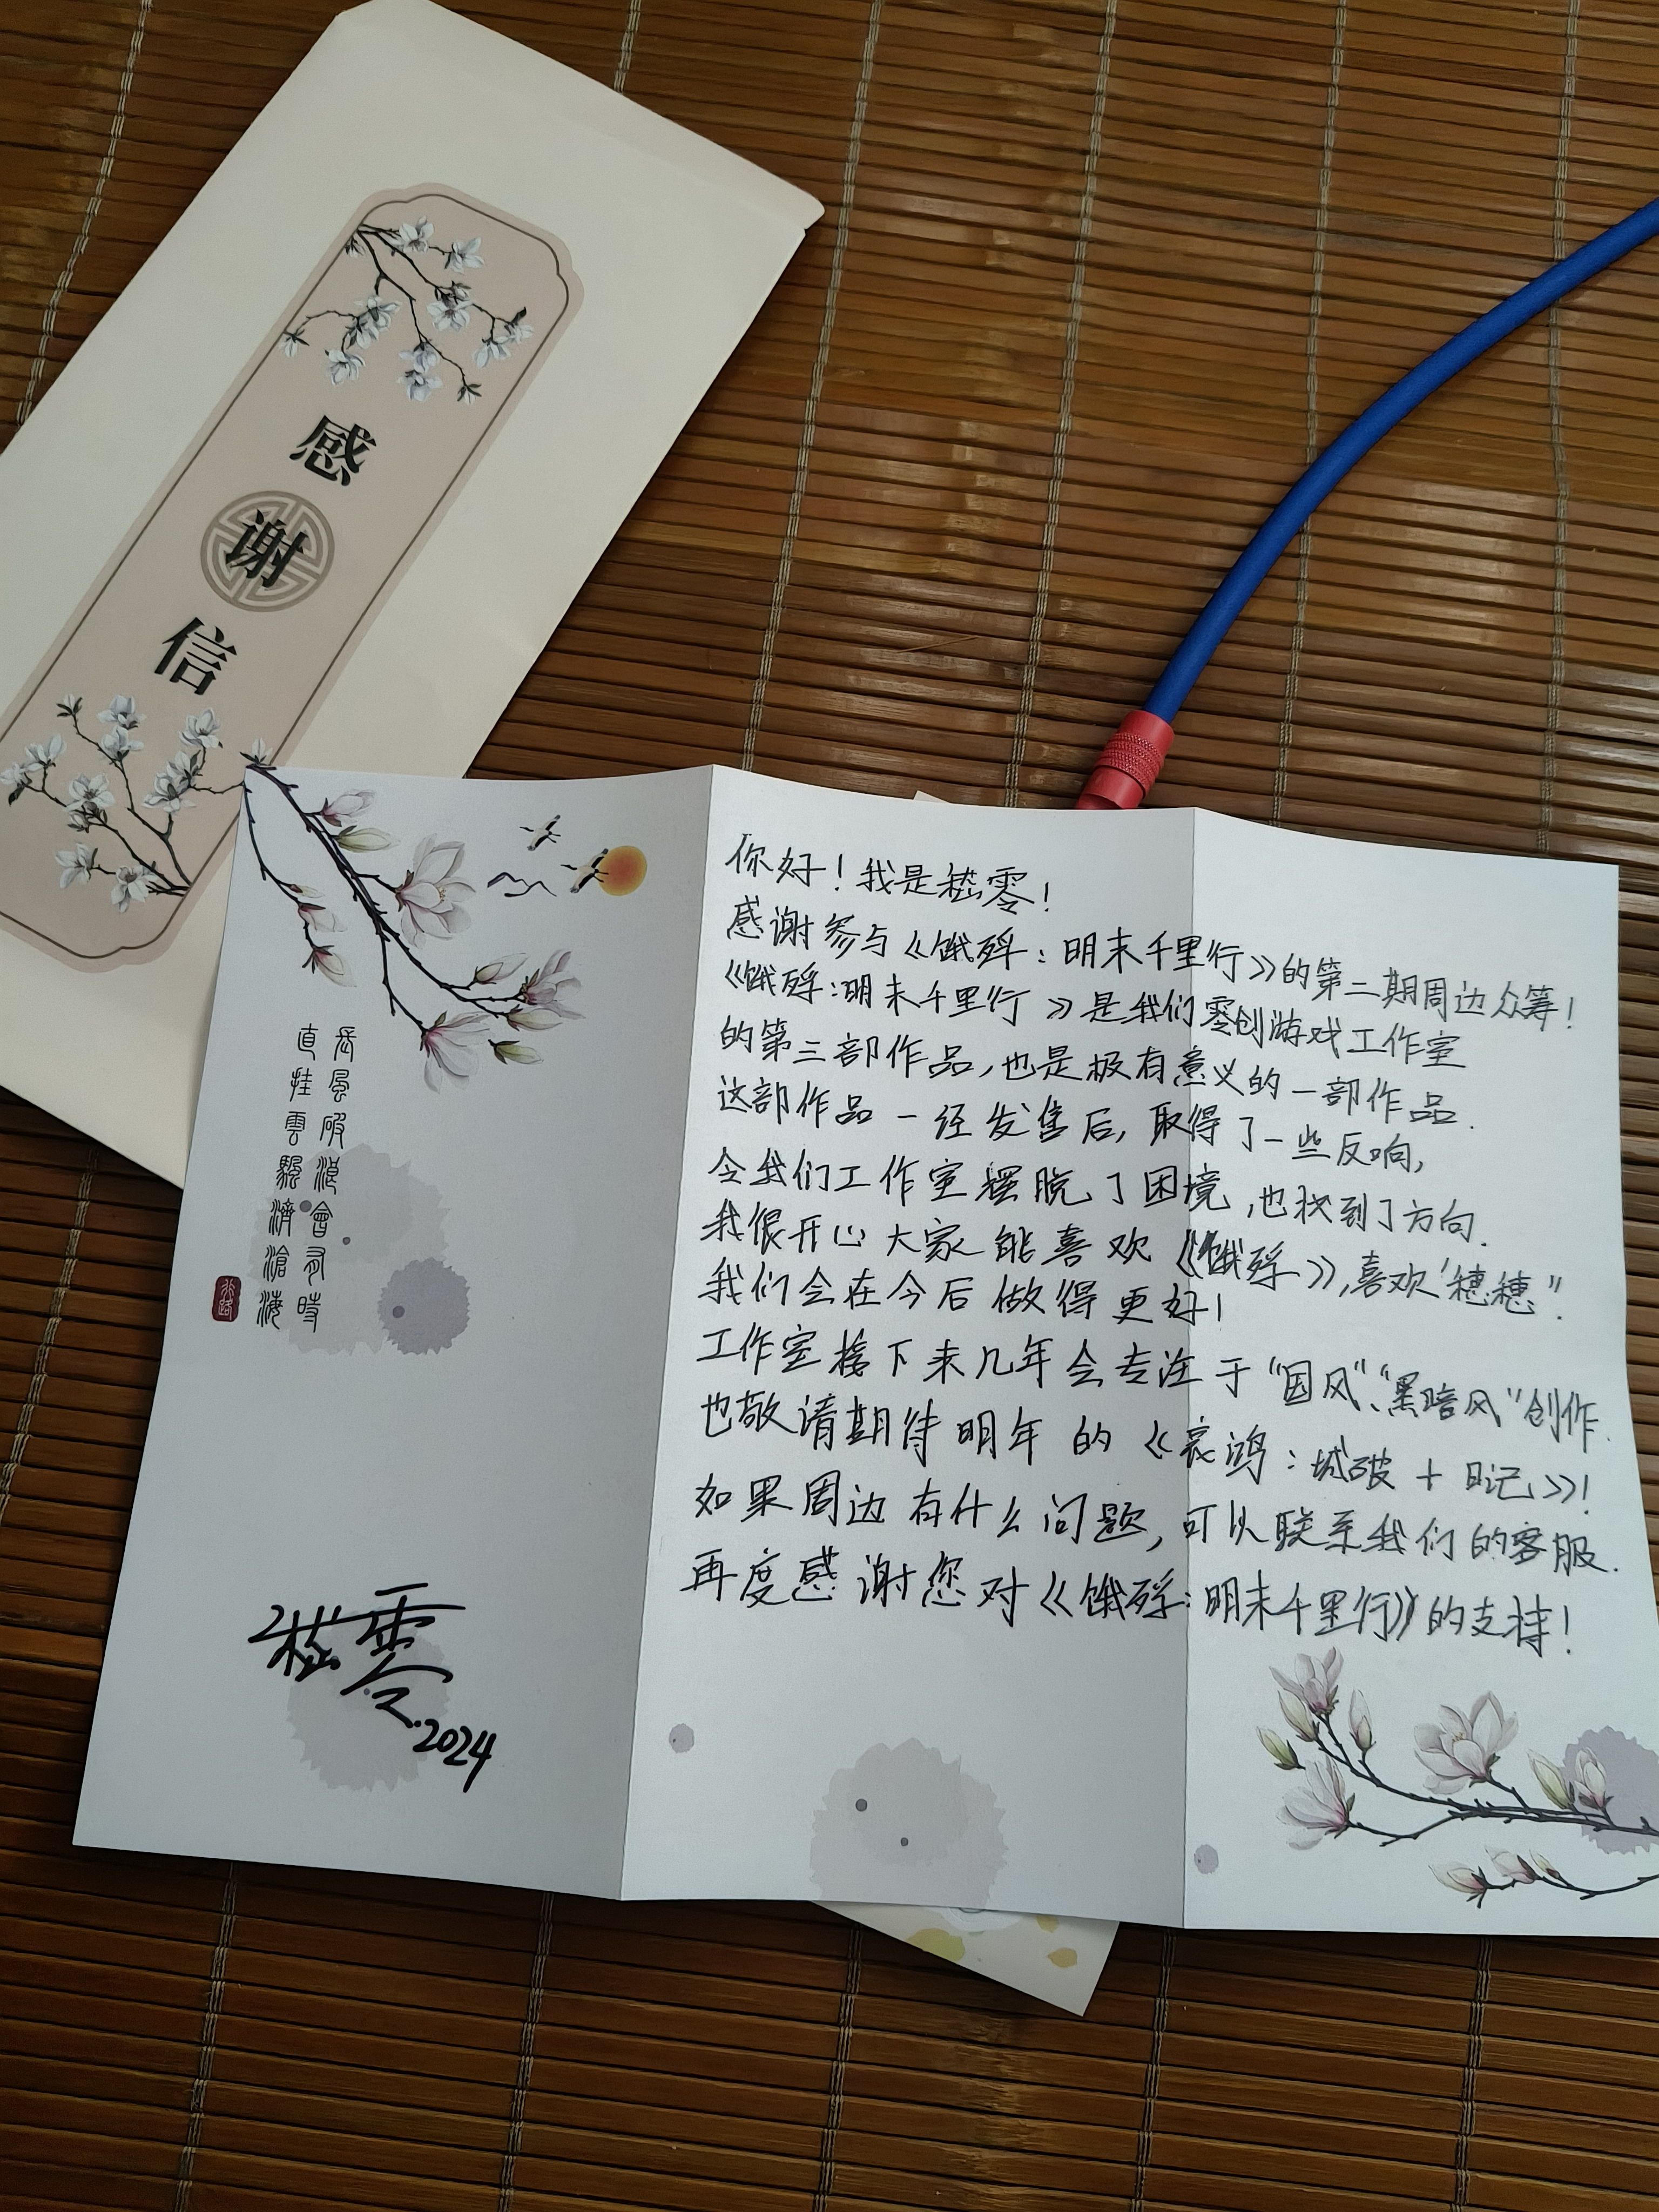 感谢信
长风破浪會有時
直挂雲颿濟滄海
行路
你好！我是嵇零！
感谢参与《饿殍：明末千里行》的第二期周边众筹！
《饿殍：明末千里行》是我们零创游戏工作室
的第三部作品，也是极有意义的一部作品.
这部作品一经发售后，取得了一些反响，
令我们工作室摆脱了困境，也找到了方向.
我很开心大家能喜欢《饿殍》，喜欢“穗穗”.
我们会在今后做得更好！
工作室接下来几年会专注于“国风”、“黑暗风”创作.
也敬请期待明年的《哀鸿：城破十日记》！
如果周边有什么问题，可以联系我们的客服.
再度感谢您对《饿殍：明末千里行》的支持！
嵇零.2024